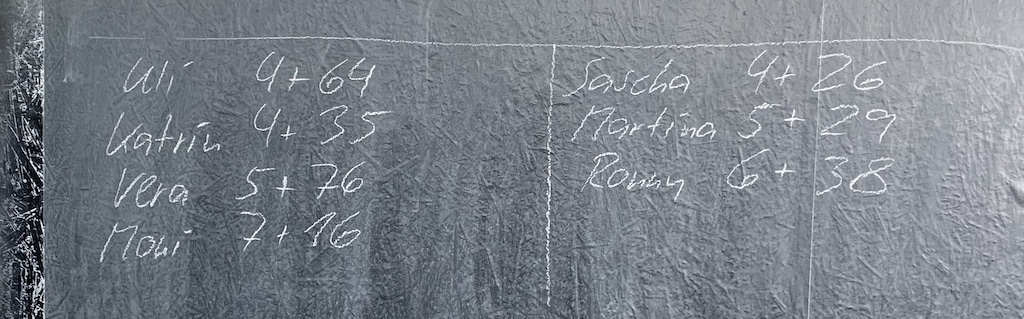 Uli 4+64
Katrin 4+35
Vera 5+76
Moni 7+16
Sascha 4+26
Martina 5+29
Ronny 6+38